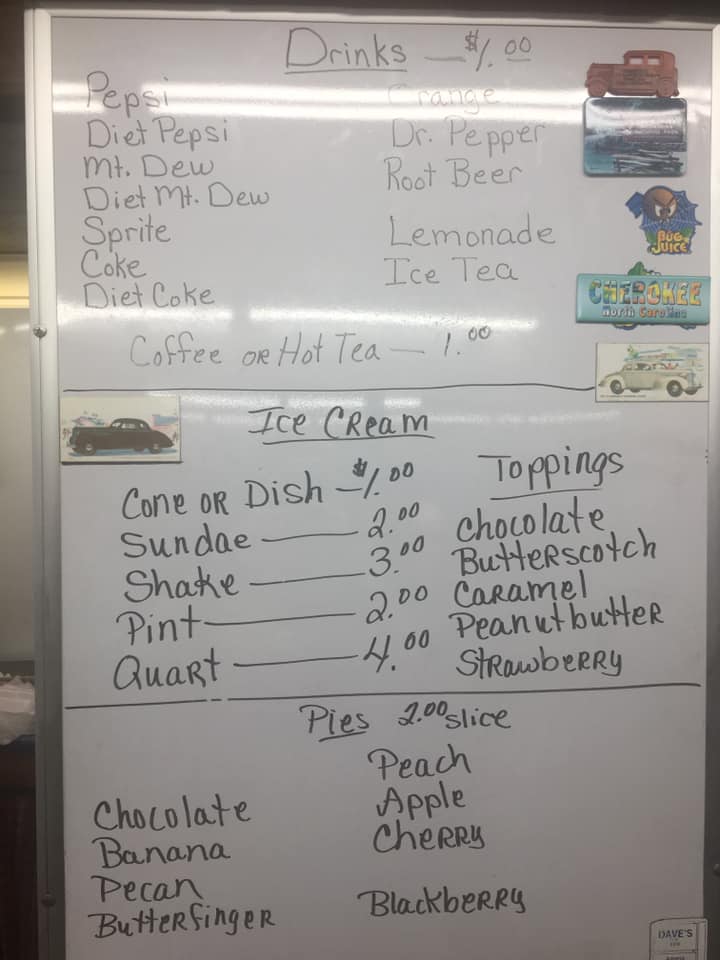 Drinks — $1.00
Pepsi
Diet Pepsi
Mt. Dew
Diet Mt. Dew
Sprite
Coke
Diet Coke
Orange
Dr. Pepper
Root Beer
Lemonade
Ice Tea
Coffee OR Hot Tea — 1.00
BUG JUICE
CHEROKEE
North Carolina
Ice CReam
Cone OR Dish — $1.00
Sundae — 2.00
Shake — 3.00
Pint — 2.00
QuaRt — 4.00
Toppings
Chocolate
ButteRscotch
CaRamel
PeanutbutteR
StRawbeRRy
Pies 2.00 slice
Chocolate
Banana
Pecan
ButteRfingeR
Peach
Apple
CheRRy
BlackbeRRy
DAVE'S